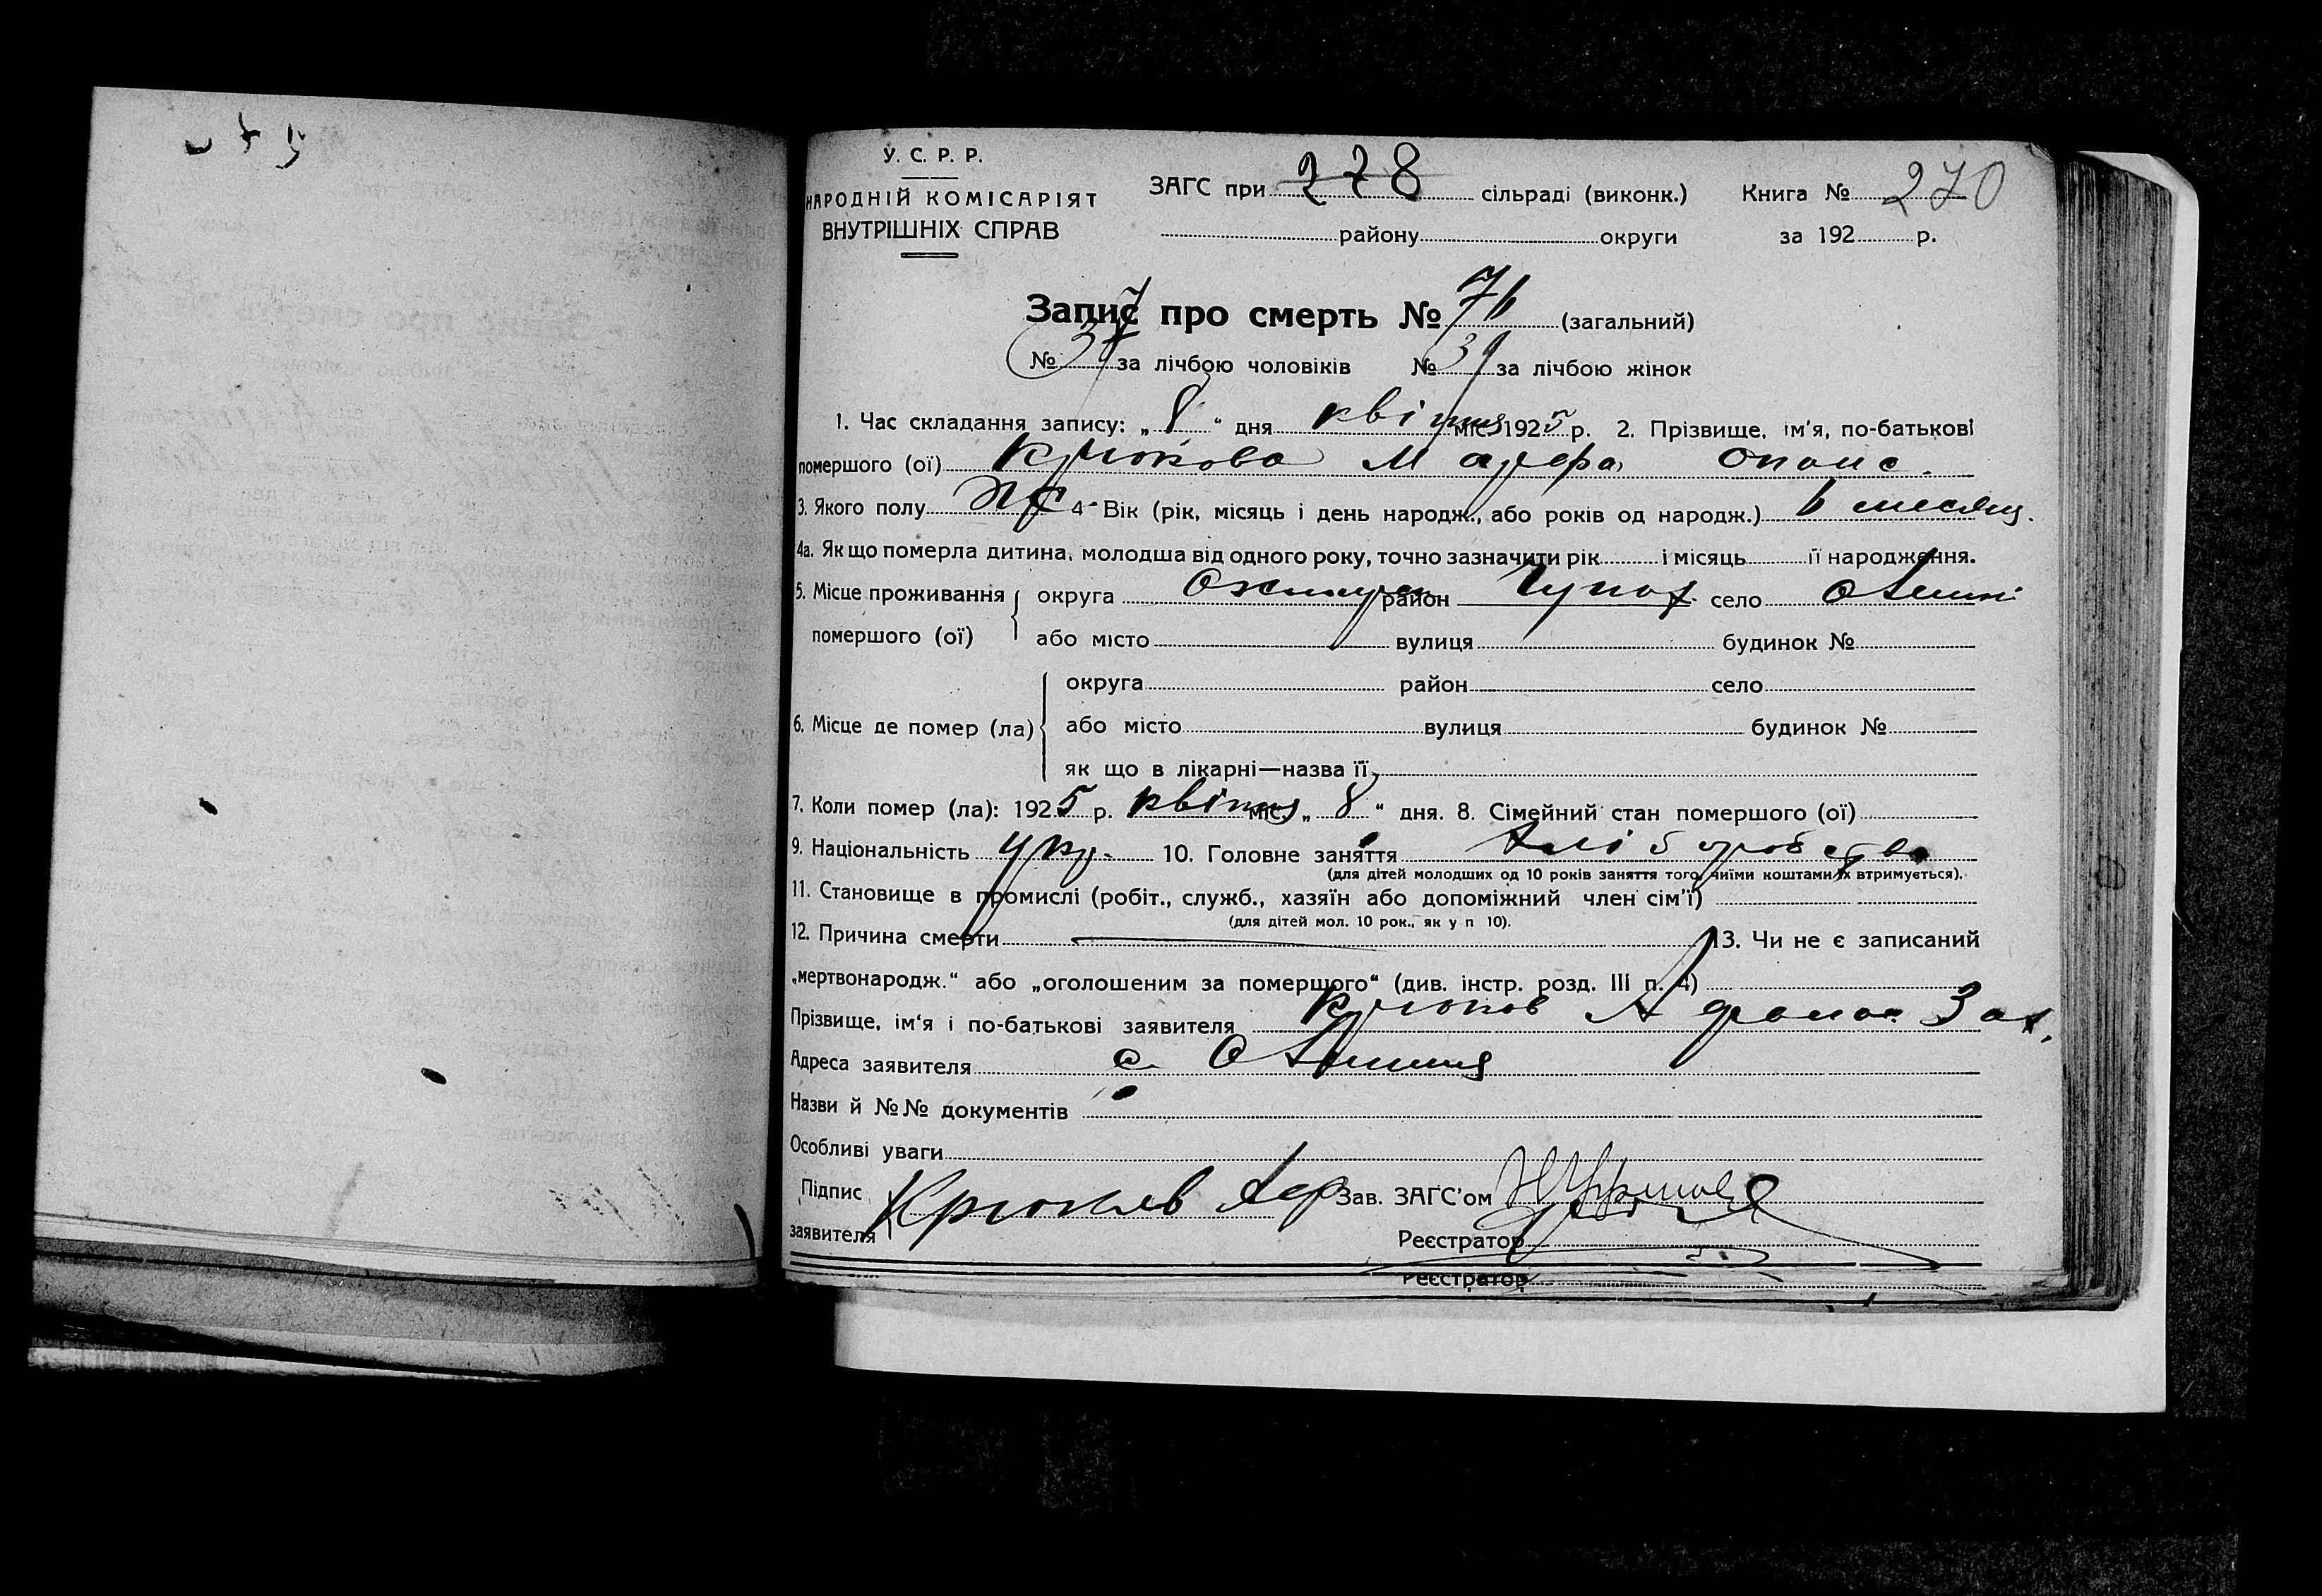 У. С. Р. Р.
НАРОДНІЙ КОМІСАРІЯТ
ВНУТРІШНІХ СПРАВ
ЗАГС при 278 сільраді (виконк.) Книга № 270
району округи за 192 р.
Запис про смерть № 76 (загальний)
№ 37 за лічбою чоловіків № 39 за лічбою жінок
1. Час складання запису: „ 8 “ дня квітня міс. 1925 р. 2. Прізвище, ім'я, по-батькові
помершого (ої) Крюкова
3. Якого полу Ж 4 Вік (рік, місяць і день народж., або років од народж.) 6 месяц.
4а. Як що померла дитина, молодша від одного року, точно зазначити рік і місяць її народження.
5. Місце проживання округа район Чупах село
помершого (ої) або місто вулиця будинок №
округа район село
6. Місце де помер (ла) або місто вулиця будинок №
як що в лікарні—назва її
7. Коли помер (ла): 1925 р. квітня міс. „ 8 “ дня. 8. Сімейний стан помершого (ої)
9. Національність Укр. 10. Головне заняття хліборобство
(для дітей молодших од 10 років заняття того, чиїми коштами їх втримується).
11. Становище в промислі (робіт., служб., хазяїн або допоміжний член сім'ї)
(для дітей мол. 10 рок., як у п 10).
12. Причина смерти — 13. Чи не є записаний
„мертвонародж.“ або „оголошеним за померщого“ (див. інстр. розд. III п. 4)
Прізвище, ім'я і по-батькові заявителя Крюков Зах.
Адреса заявителя с.
Назви й №№ документів
Особливі уваги
Підпис Крюков Зав. ЗАГС'ом
заявителя Реєстратор
Реєстратор